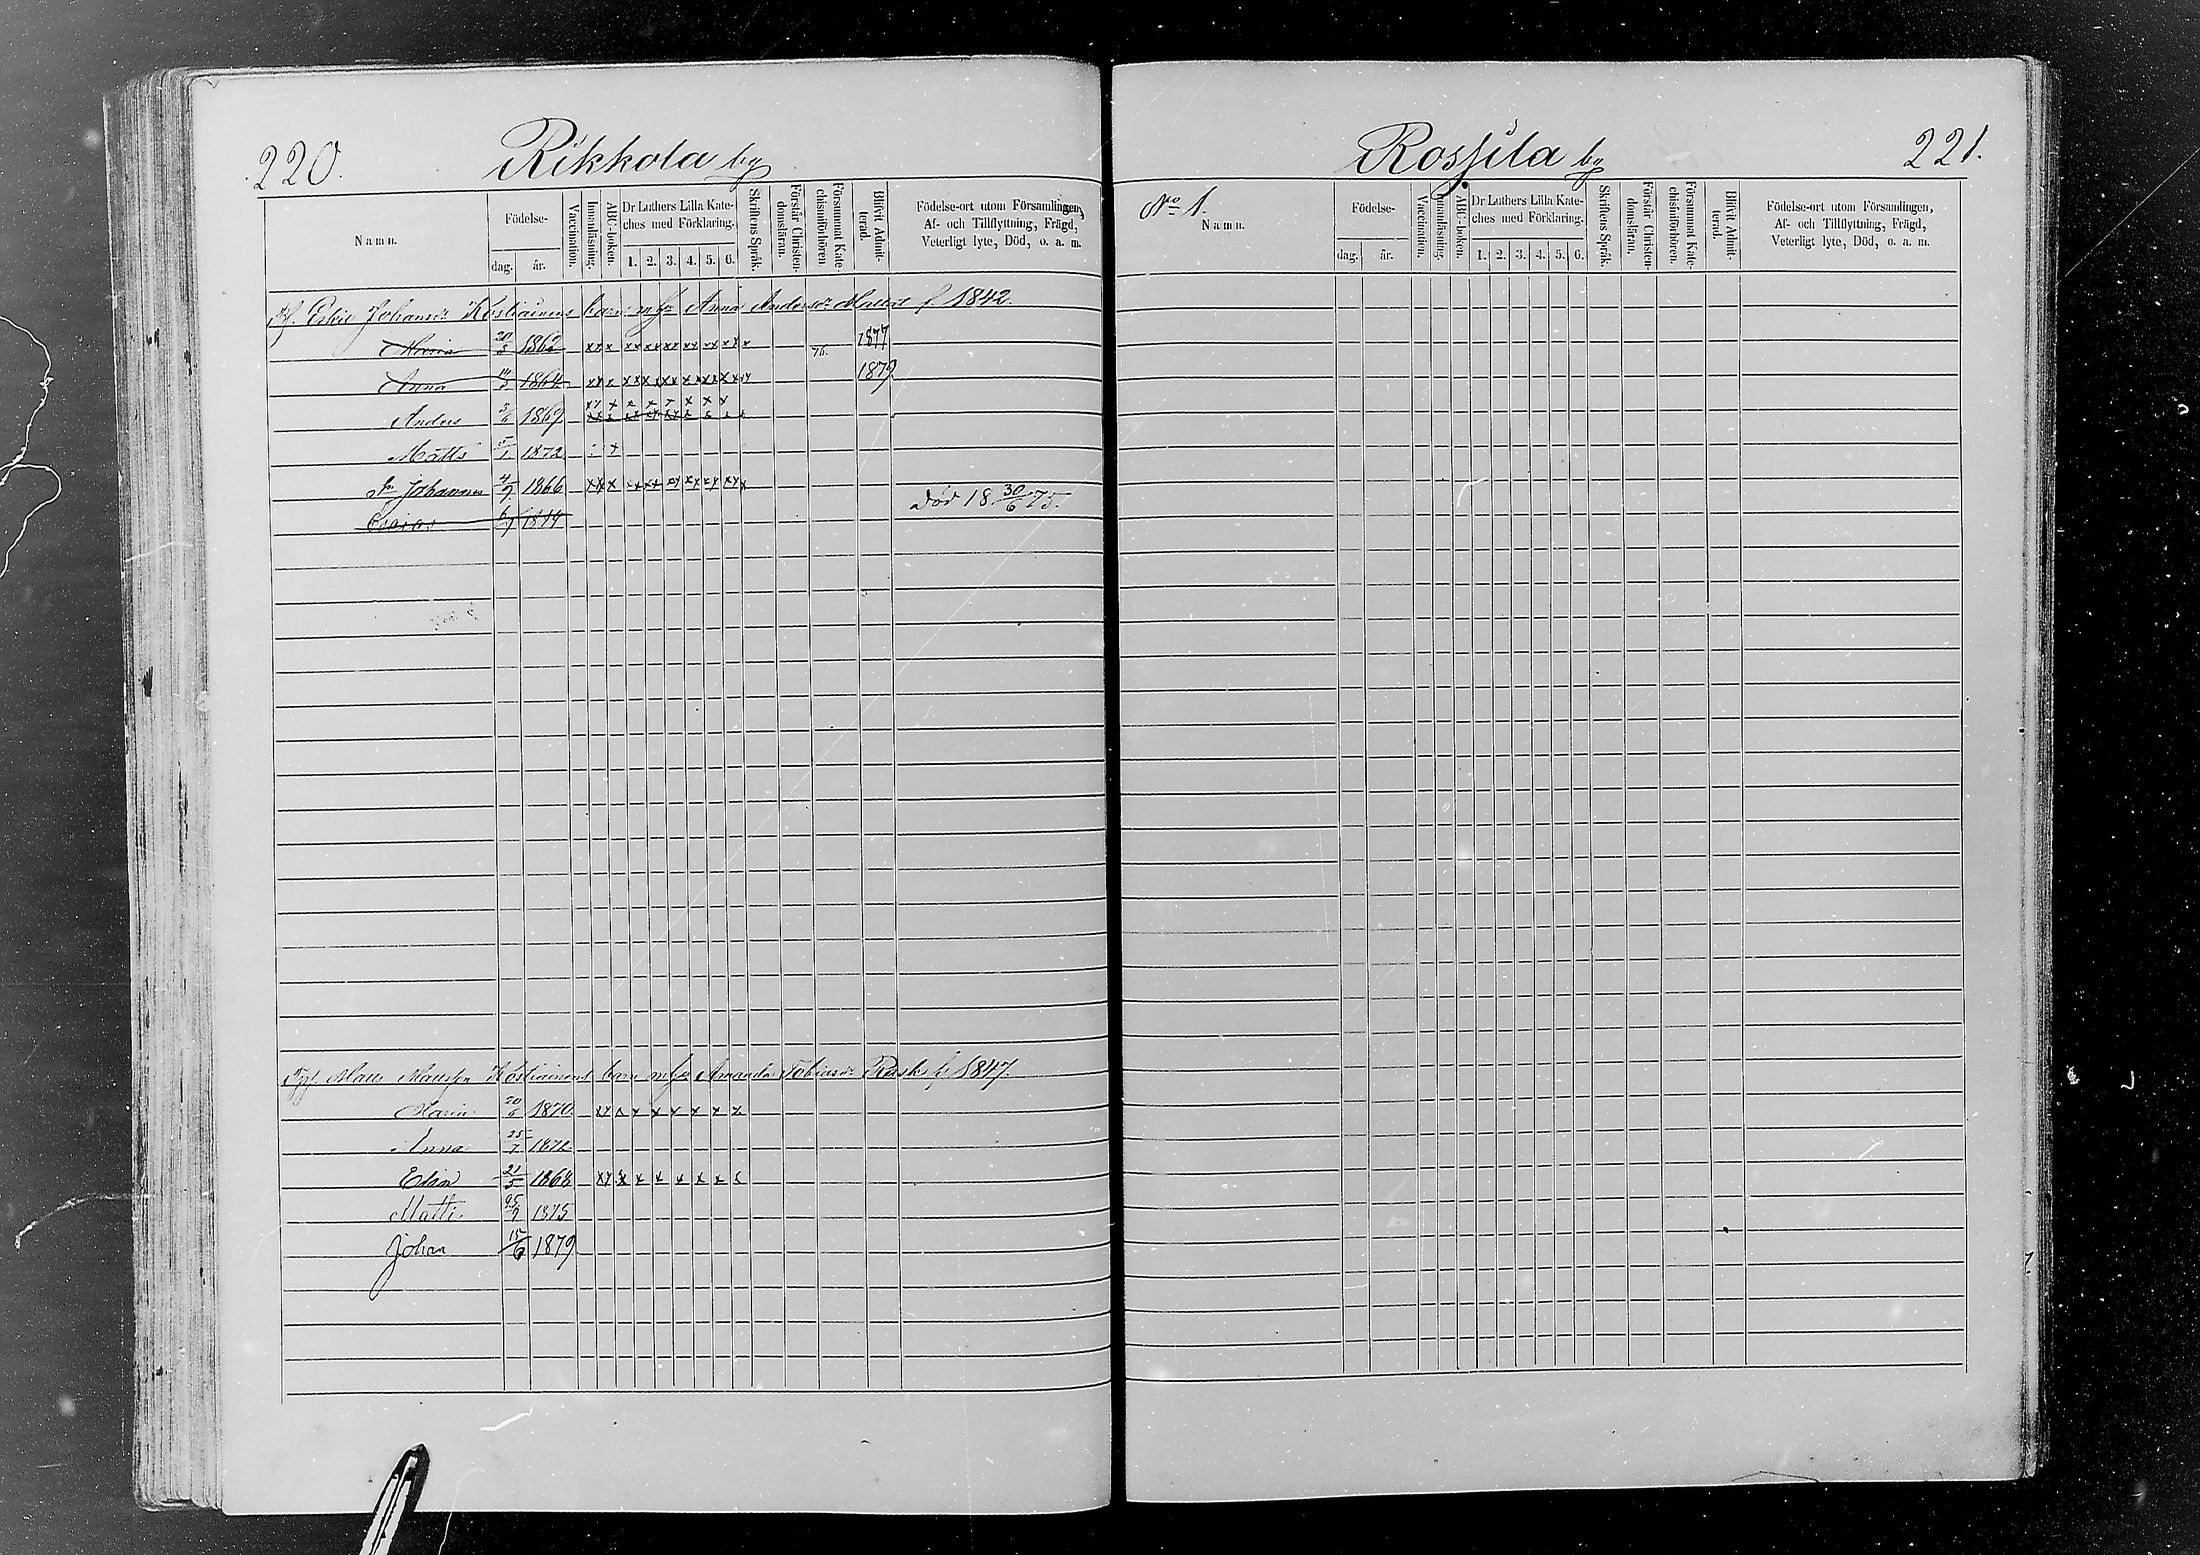 220.
Rikkola by
Namn.
Födelse-
dag.
år.
Vaccination.
Innanläsning.
ABC-boken.
Dr Luthers Lilla Kate-
ches med Förklaring.
1. 2. 3. 4. 5. 6.
Skriftens Språk.
Förstår Christen-
domsläran.
Försummat Kate-
chismiförhören
Blifvit Admit-
terad.
Födelse-ort utom Församlingen,
Af- och Tillflyttning, Frägd,
Veterligt lyte, Död, o. a. m.
Johanss Kostiainens barn m h Anna Andersdr f 1842.
Maria 20/8 1862 xx x xx xx xx xx xx xx x 76. 1877
Anna 1864 xx x xx xx xx x xx xx 1879
Anders 1869 xx x x x x x x x
Matts 5/1 1872
Johannes 4/9 1866 xx x
Esaias 6/1 1874 Död 18 30/6 75.
Kostiainens barn m h Amanda Tobiasdr Rask f 1847.
Maria 20/6 1870 xx x x x x x x x
Anna 25/7 1872
Elin 21/5 1868 xx x x x x x x
Matti 25/9 1875
Johan 15/6 1879
221.
Rossila by
No 1.
Namn.
Födelse-
dag.
år.
Vaccination.
Innanläsning.
ABC-boken.
Dr Luthers Lilla Kate-
ches med Förklaring.
1. 2. 3. 4. 5. 6.
Skriftens Språk.
Förstår Christen-
domsläran.
Försummat Kate-
chismiförhören.
Blifvit Admit-
terad.
Födelse-ort utom Församlingen,
Af- och Tillflyttning, Frägd,
Veterligt lyte, Död, o. a. m.